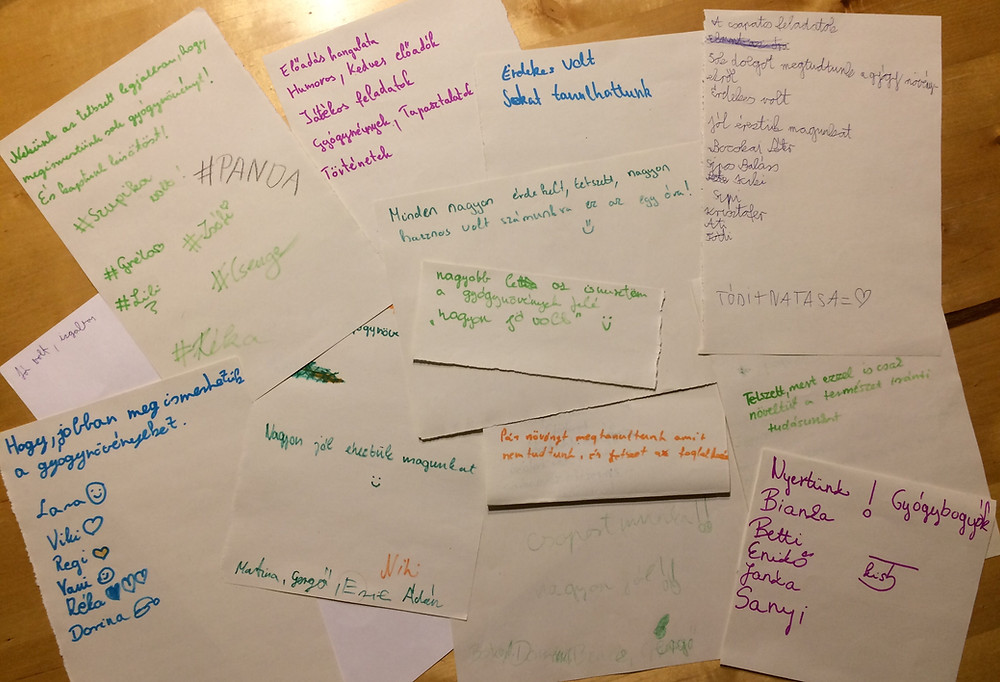 Nekünk az tetszett legjobban, hogy
megismertünk sok gyógynövényt!
És kaptunk kitűzőt!
#Szupika
volt!
#PANDA
#Zsófi
#Gréta
#Csenge
#Lili
#Réka
Előadás hangulata
Humoros, Kedves előadók
Játékos feladatok
Gyógynövények, Tapasztalatok
Történetek
Érdekes volt
Sokat tanulhattunk
A csapatos feladatok
Sok dolgot megtudtunk a gyógy növény-
ekről
Érdekes volt
Jól éreztük magunkat
Balázs
Kristófer
Ati
Tódi
TÓDI+NATASA=♡
Minden nagyon érdekelt, tetszett, nagyon
hasznos volt számunkra ez az egy óra!
nagyobb lett az ismeretem
a gyógynövények felé
"nagyon jó volt"
volt, izgalmas
Hogy, jobban meg ismerhetük
a gyógynövényeket.
Lara
Viki
Regi
Vani
Réka
Dorina
Nagyon jól éreztük magunkat
Niki
Martina, Gergő, Eszt Ádám
Pár növényt megtanultunk amit
nem tudtunk, és tetszet
Tetszett, mert ezzel is csak
növeltük a természet iránti
tudásunkat
csoport munka!!
nagyon jó
Nyertünk ! Gyógybogyók
Bianka
Betti
Enikő
Janka
Sanyi